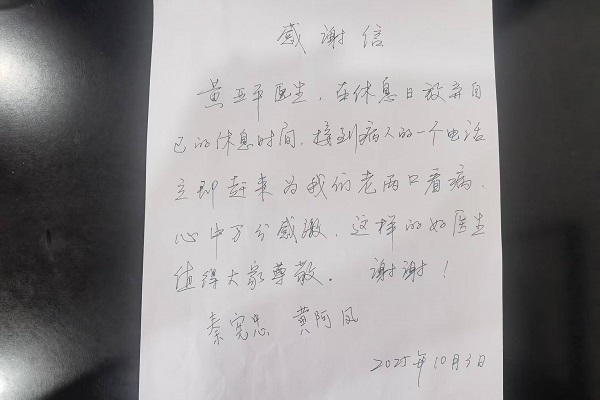 感谢信
黄亚平医生，在休息日放弃自
己的休息时间，接到病人的一个电话
立即赶来为我们老两口看病，
心中万分感激，这样的好医生
值得大家尊敬。 谢谢！
秦宪忠 黄阿凤
2025年10月3日